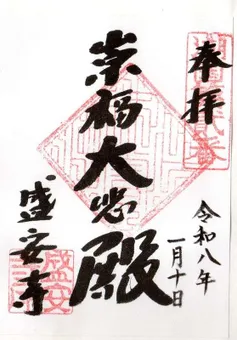 奉拝
令和八年
一月十日
崇福大悲殿
盛安寺